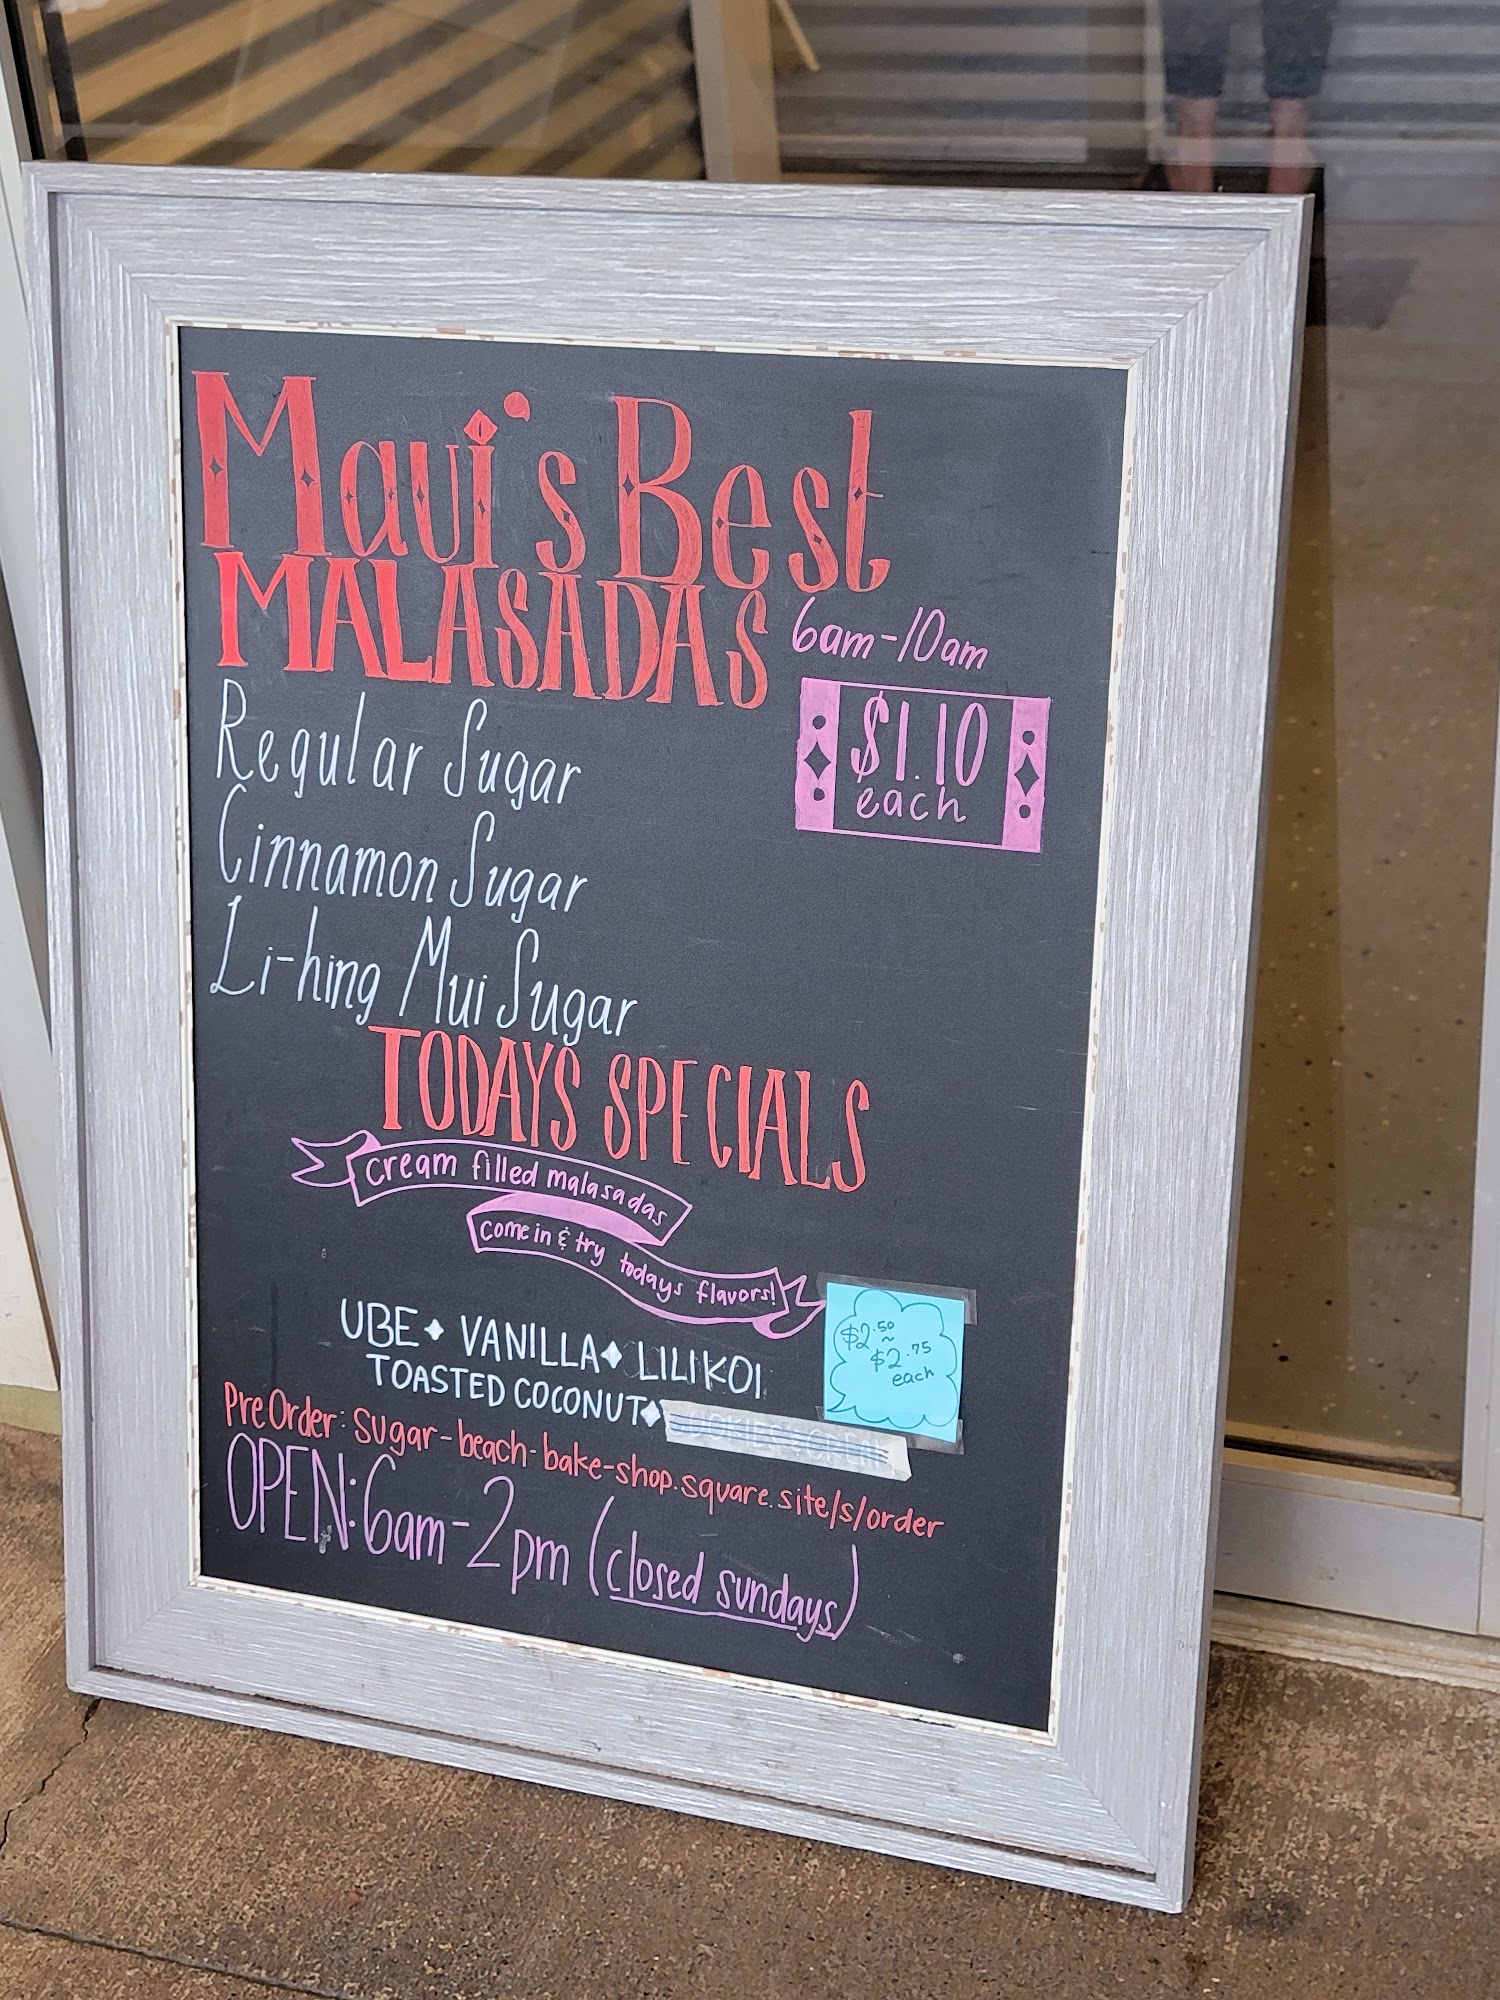 Maui's Best
MALASADAS
6am-10am
$1.10
each
Regular Sugar
Cinnamon Sugar
Li-hing Mui Sugar
TODAYS SPECIALS
cream filled malasadas
come in & try todays flavors!
UBE ✦ VANILLA ✦ LILIKOI
TOASTED COCONUT ✦
$2.50
~
$2.75
each
PreOrder: sugar-beach-bake-shop.square.site/s/order
OPEN: 6am-2pm (closed sundays)